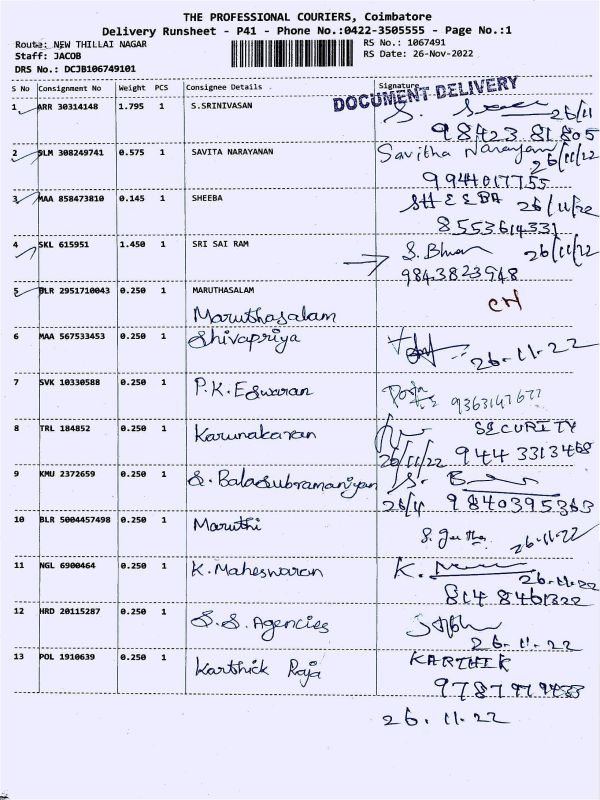 THE PROFESSIONAL COURIERS, Coimbatore
Delivery Runsheet - P41 - Phone No.:0422-3505555 - Page No.:1
Route: NEW THILLAI NAGAR RS No.: 1067491
Staff: JACOB RS Date: 26-Nov-2022
DRS No.: DCJB106749101
S No Consignment No Weight PCS Consignee Details Signature
DOCUMENT DELIVERY
1 ARR 30314148 1.795 1 S.SRINIVASAN S. 26/11
98423 81805
2 SLM 308249741 0.575 1 SAVITA NARAYANAN Savitha Narayan 26/11/22
9944017755
3 MAA 858473810 0.145 1 SHEEBA SHEEBA 26/11/22
8553614331
4 SKL 615951 1.450 1 SRI SAI RAM 26/11/22
9843823948
5 BLR 2951710043 0.250 1 MARUTHASALAM
Maruthasalam
6 MAA 567533453 0.250 1 Shivapriya 26-11-22
7 SVK 10330588 0.250 1 P.K.Eswaran
8 TRL 184852 0.250 1 Karunakaran SECURITY
26/11/22 944 3313468
9 KMU 2372659 0.250 1 S. Balasubramaniyan S. B
26/11 9840395363
10 BLR 5004457498 0.250 1 Maruthi 26-11-22
11 NGL 6900464 0.250 1 K.Maheswaran K. 26-11-22
814 8461322
12 HRD 20115287 0.250 1 S.S. Agencies
26-11-22
13 POL 1910639 0.250 1 Karthick Raja KARTHIK
26.11.22